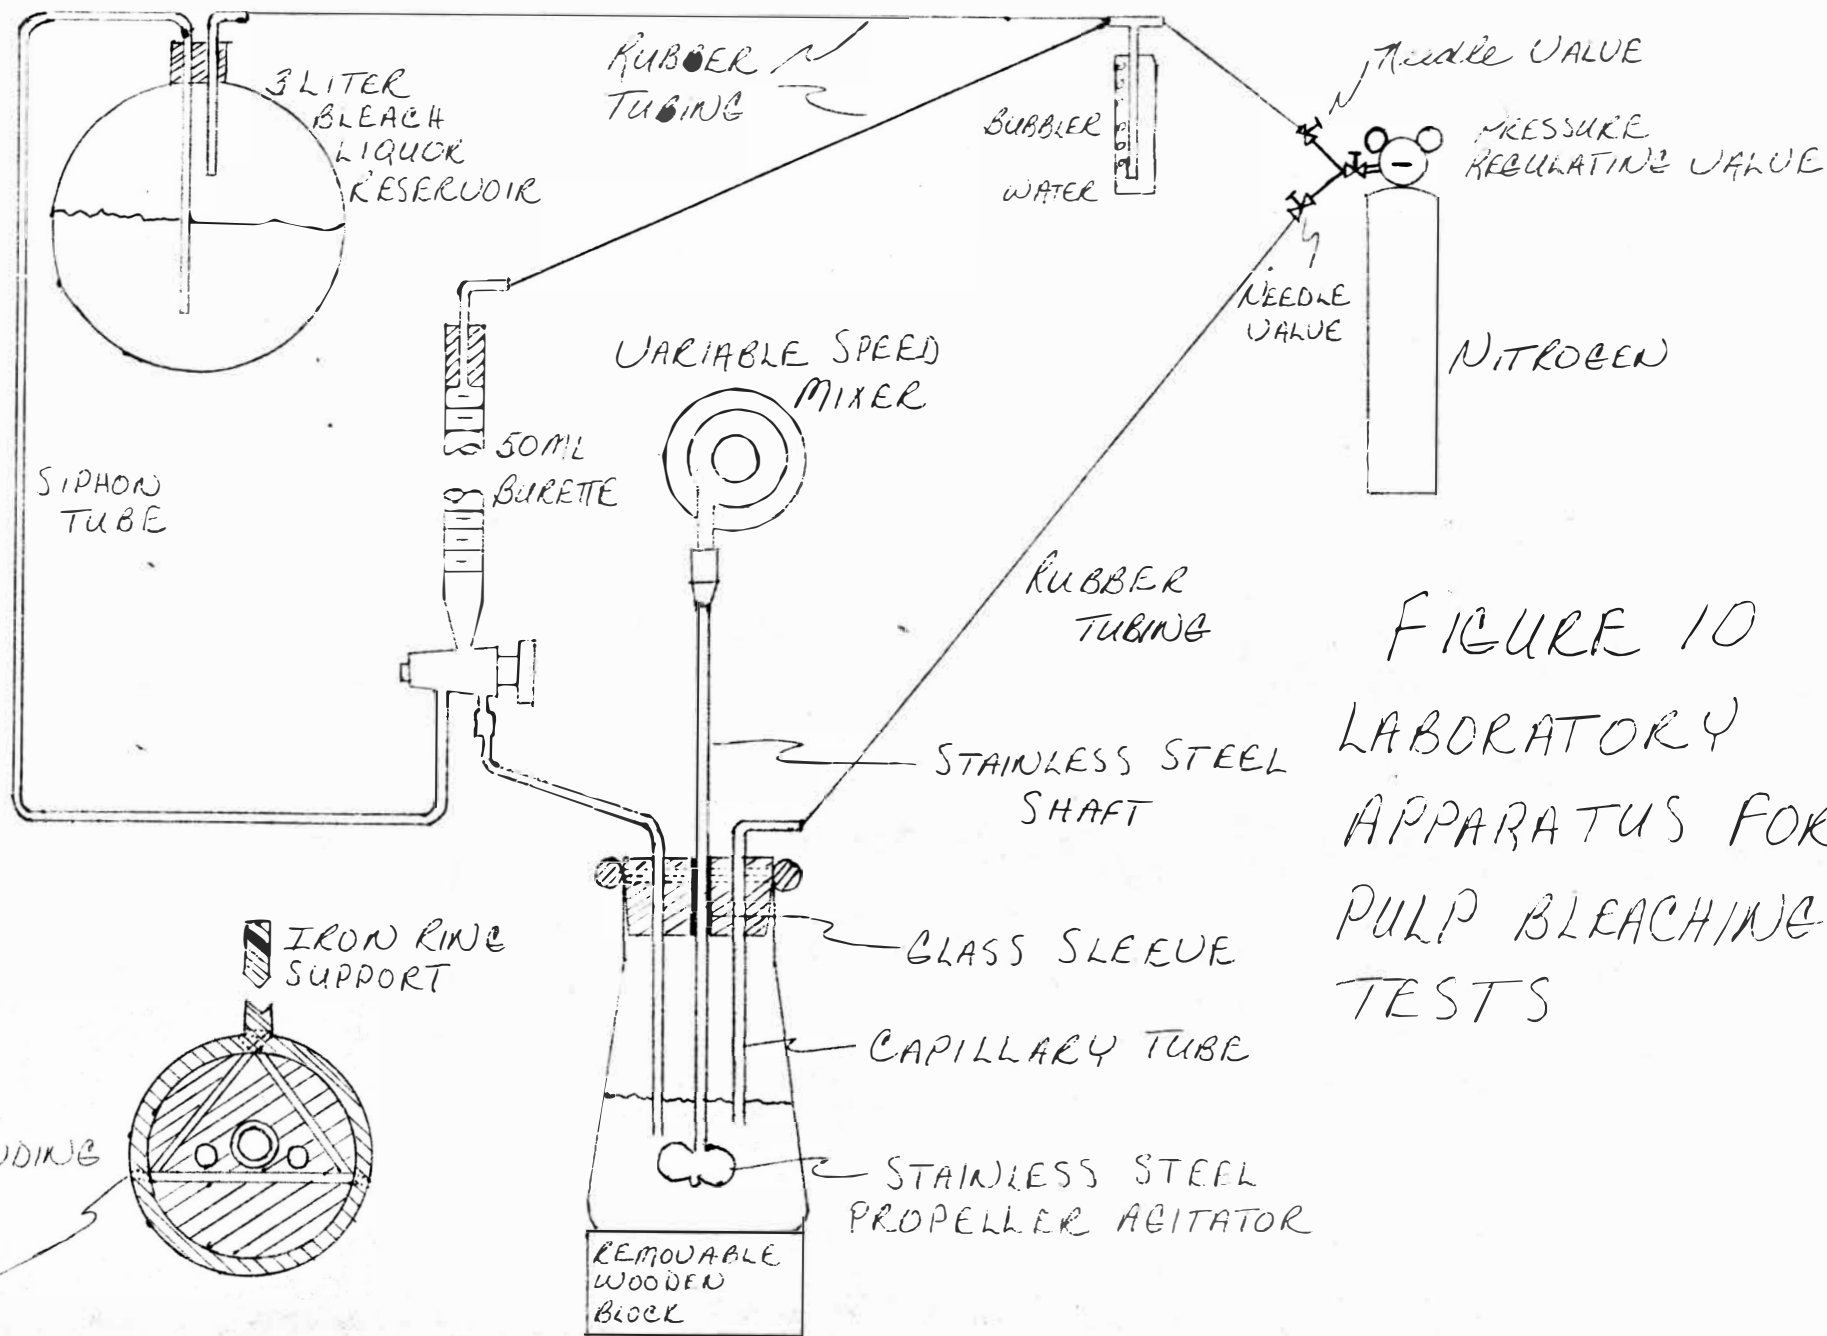 3 LITER
BLEACH
LIQUOR
RESERVOIR
RUBBER
TUBING
BUBBLER
WATER
Needle VALVE
PRESSURE
REGULATING VALVE
NEEDLE
VALVE
NITROGEN
VARIABLE SPEED
MIXER
50 ML
BURETTE
SIPHON
TUBE
RUBBER
TUBING
STAINLESS STEEL
SHAFT
GLASS SLEEVE
CAPILLARY TUBE
STAINLESS STEEL
PROPELLER AGITATOR
REMOVABLE
WOODEN
BLOCK
IRON RING
SUPPORT
FIGURE 10
LABORATORY
APPARATUS FOR
PULP BLEACHING
TESTS